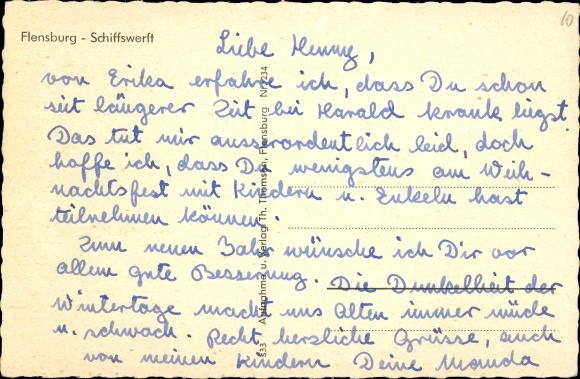 10
Flensburg - Schiffswerft
Liebe Henny,
von Erika erfahre ich, dass Du schon
seit längerer Zeit bei Harald krank liegst.
Das tut mir ausserordentlich leid, doch
hoffe ich, dass Du wenigstens am Weih-
nachtsfest mit Kindern u. Enkeln hast
teilnehmen können.
Zum neuen Jahr wünsche ich Dir vor
allem gute Besserung. Die Dunkelheit der
Wintertage macht uns Alten immer müde
u. schwach. Recht herzliche Grüsse, auch
von meinen Kindern Deine
533 Aufnahme u. Verlag Th. Thomsen, Flensburg Nr. 234